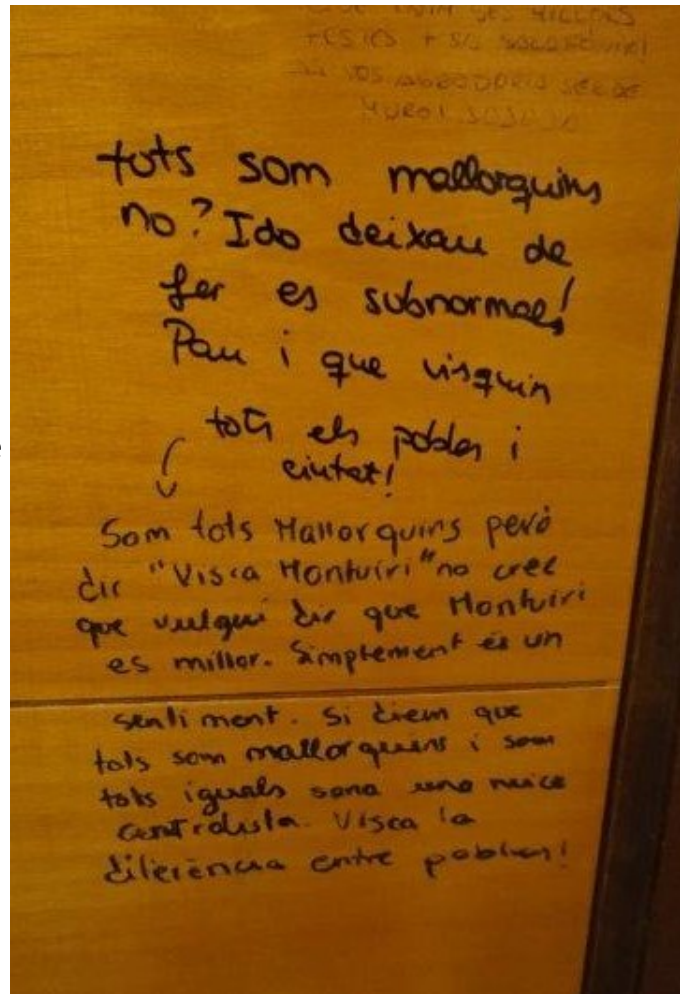 MILLORS
tots som mallorquins
no? Ido deixau de
fer es subnormals!
Pau i que visquin
tots els pobles i
ciutat!
Som tots Mallorquins però
dir "Visca Montuïri" no crec
que vulgui dir que Montuïri
es millor. Simplement és un
sentiment. Si diem que
tots som mallorquins i som
tots iguals sona una mica
centralista. Visca la
diferència entre pobles!